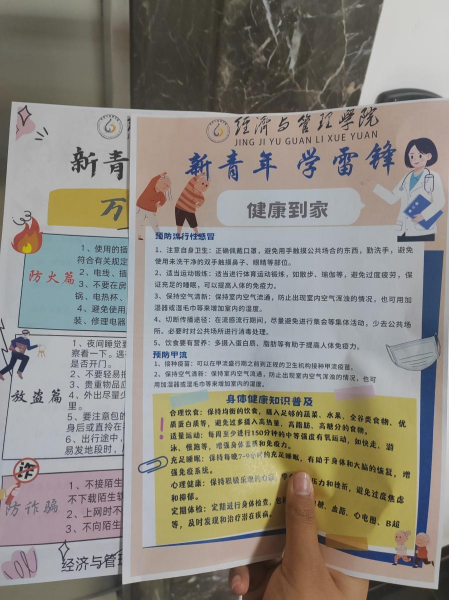 经济与管理学院
JING JI YU GUAN LI XUE YUAN
新青年 学雷锋
健康到家
预防流行性感冒
1、注意自身卫生：正确佩戴口罩，避免用手触摸公共场合的东西，勤洗手，避免
使用未洗干净的双手触摸鼻子、眼睛等部位。
2、适当运动锻炼：适当进行体育运动锻炼，如散步、瑜伽等，避免过度疲劳，保
证充足的睡眠，可以提高人体的免疫力。
3、保持空气清新：保持室内空气流通，防止出现室内空气浑浊的情况，也可用加
湿器或湿毛巾等来增加室内的湿度。
4、切断传播途径：在流感流行期间，尽量避免进行集会等集体活动，少去公共场
所。必要时对公共场所进行消毒处理。
5、饮食要有营养：多摄入蛋白质、脂肪等有助于提高人体免疫力。
预防甲流
1、接种疫苗：可以在甲流盛行期之前到正规的卫生机构接种甲流疫苗。
2、保持空气清新：保持室内空气流通，防止出现室内空气浑浊的情况，也可
用加湿器或湿毛巾等来增加室内的湿度。
身体健康知识普及
合理饮食：保持均衡的饮食，摄入足够的蔬菜、水果、全谷类食物、优
质蛋白质等，避免过多摄入高热量、高脂肪、高糖分的食物。
适量运动：每周至少进行150分钟的中等强度有氧运动，如快走、游
泳、慢跑等，增强身体素质和免疫力。
充足睡眠：保持每晚7-9小时的充足睡眠，有助于身体和大脑的恢复，增
强免疫系统。
心理健康：保持积极乐观的心态，
压力和挫折，避免过度焦虑
和抑郁。
定期体检：定期进行身体检查，
血脂、心电图、B超
等，及时发现和治疗潜在疾病。
新青
万
防火篇
1、使用的插
符合有关规定
2、电线、插
3、不要在房
锅、电热杯、
4、避免使用
装、修理电器
放盗篇
1、夜间睡觉
察看一下。遇
是否开门。
2、不要轻易把
3、贵重物品应
4、外出尽量少
里。
5、要注意包的
身后或直拎在
6、出行途中，
易发地段时，
诈
防诈骗
1、不接陌生
不下载陌生软
2、上网时不
3、不向陌生
经济与管